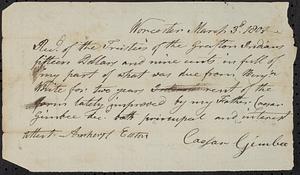 Worcester March 3d 180
Recd of the Trustees of the Grafton Indians
fifteen Dollars and nine cents in full of
my part of what was due from
White for two years rent of the
farm lately improved by my Father Caesar
Gimbee dec both principal and interest
attest - Amherst Eaton
Caesar Gimbee